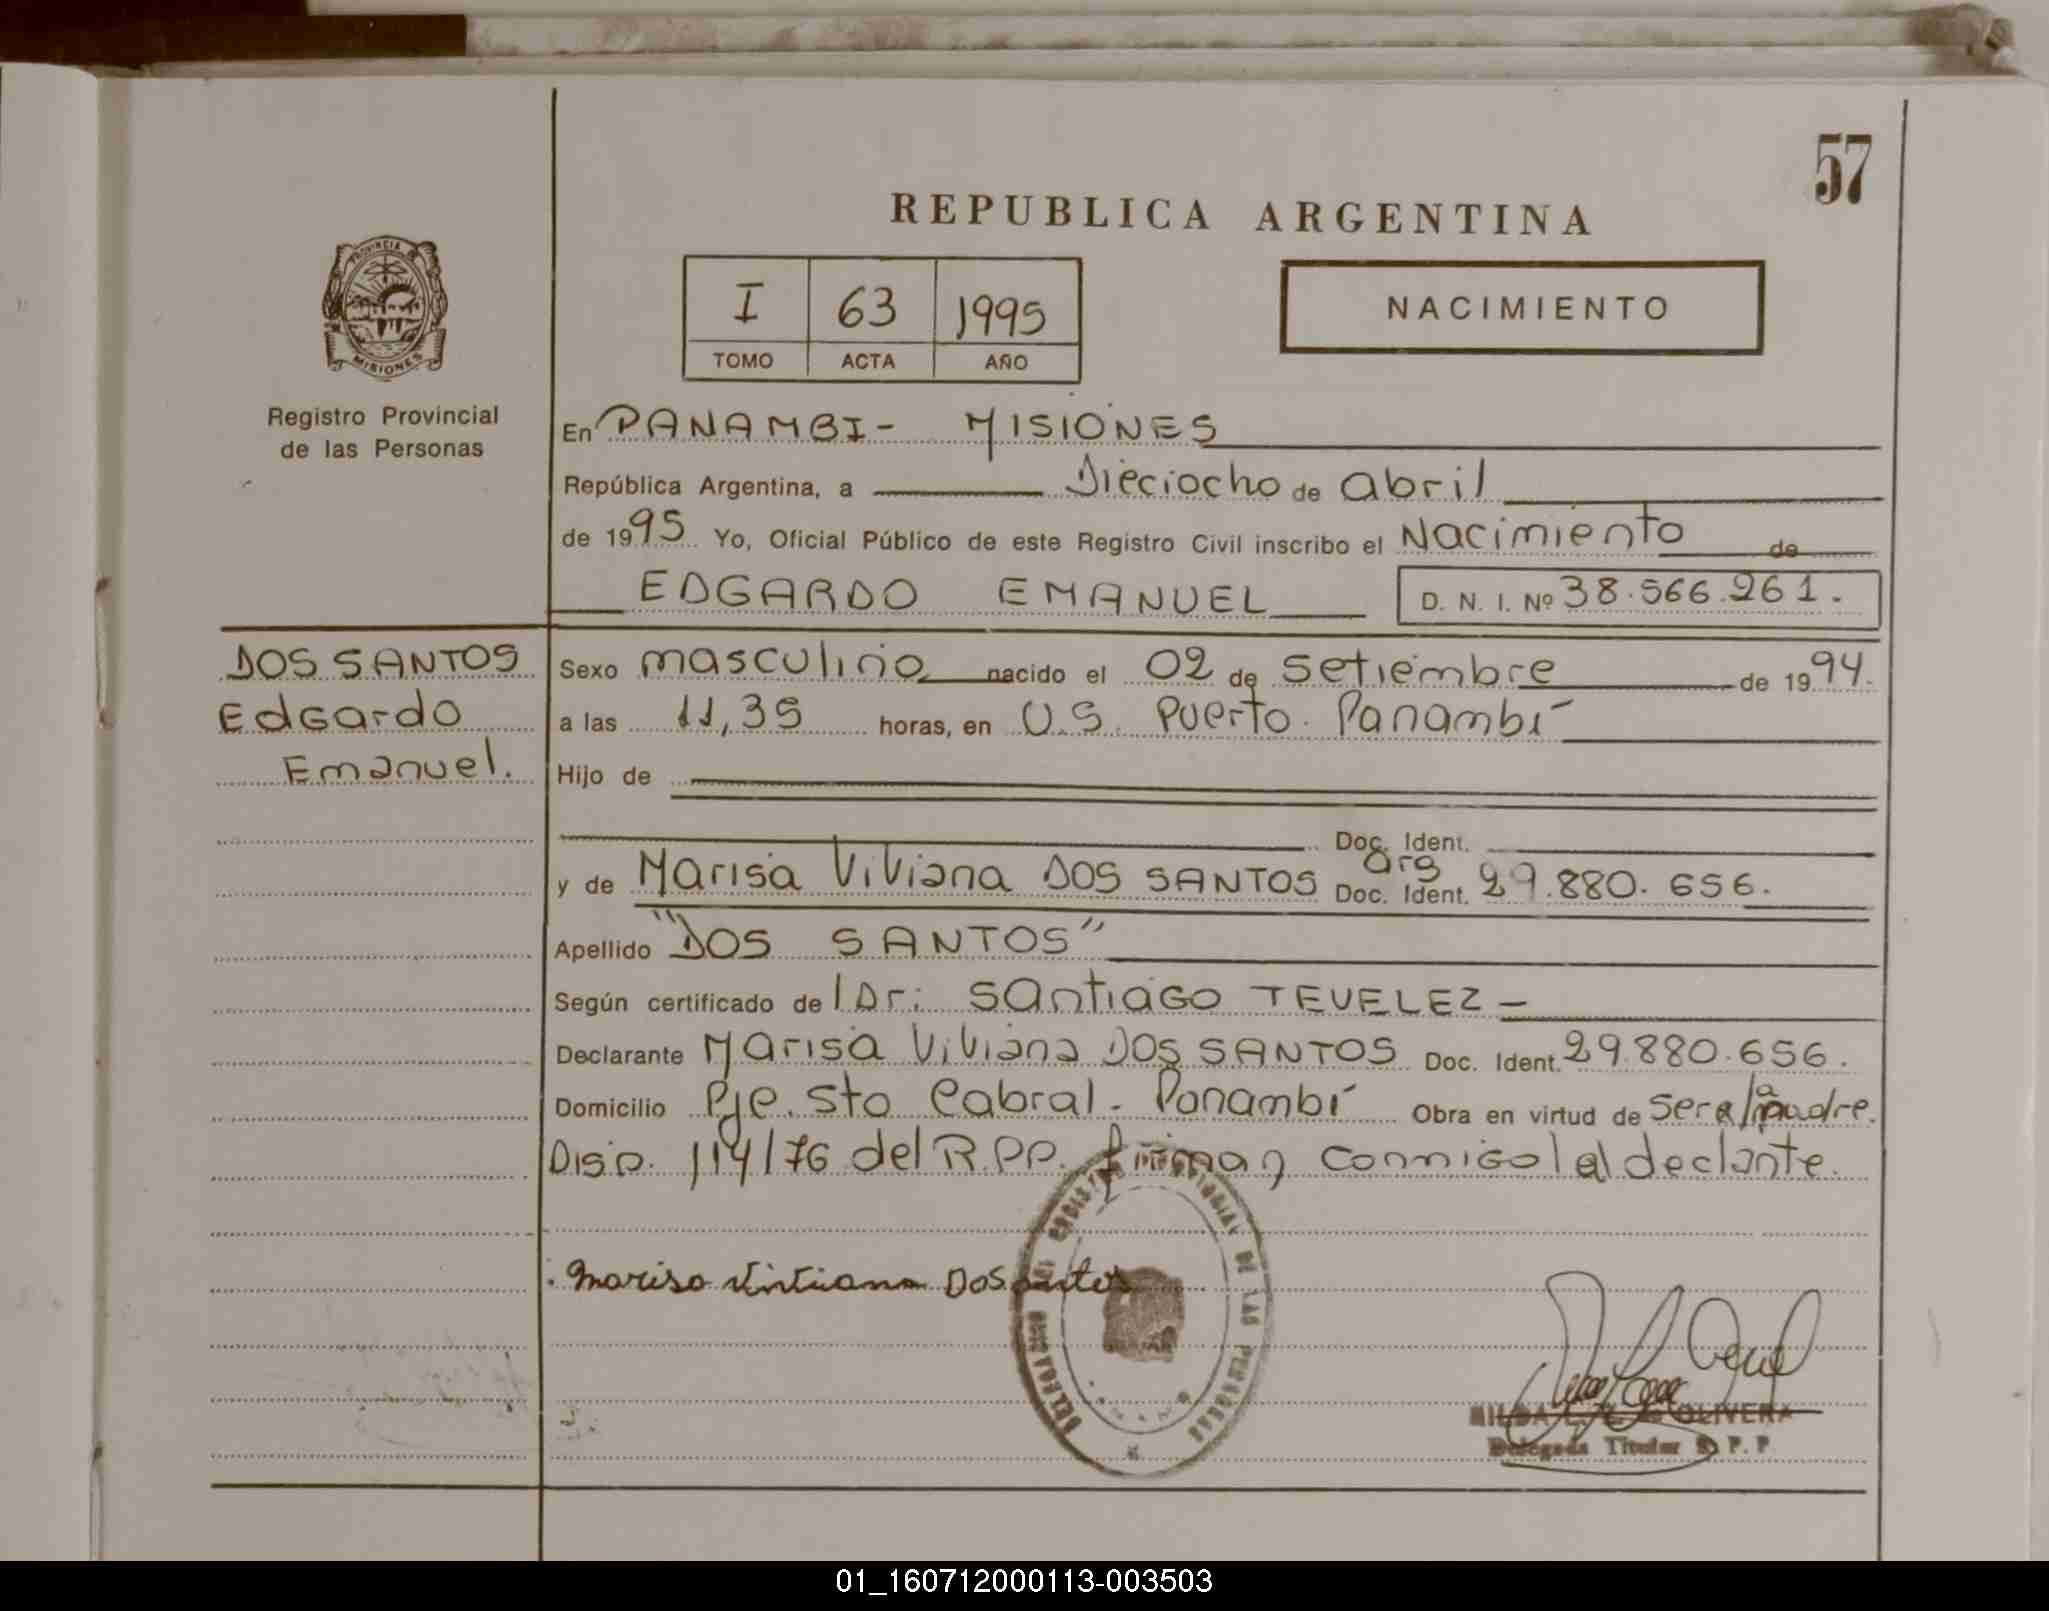 57
REPUBLICA ARGENTINA
PROVINCIA DE
MISIONES
I 63 1995
TOMO ACTA AÑO
NACIMIENTO
Registro Provincial
de las Personas
En PANAMBI - MISIONES
República Argentina, a Dieciocho de abril
de 1995 Yo, Oficial Público de este Registro Civil inscribo el Nacimiento de
EDGARDO EMANUEL D. N. I. Nº 38.566.261.
DOS SANTOS
Edgardo
Emanuel.
Sexo masculino nacido el 02 de Setiembre de 1994.
a las 11,35 horas, en U.S. Puerto Panambí
Hijo de
Doc. Ident.
y de Marisa Viviana DOS SANTOS Doc. Ident. arg 29.880.656.
Apellido "DOS SANTOS"
Según certificado de l Dr: Santiago TEVELEZ -
Declarante Marisa Viviana DOS SANTOS Doc. Ident. 29.880.656.
Domicilio Pje. Sto Cabral - Panambí Obra en virtud de ser la madre.
Disp. 114/76 del R.P.P. firman conmigo el declante.
DELEGACION REGISTRO PROVINCIAL DE LAS PERSONAS
Marisa Viviana Dos antos
OLIVERA
Delegada Titular R. P. P.
01_160712000113-003503